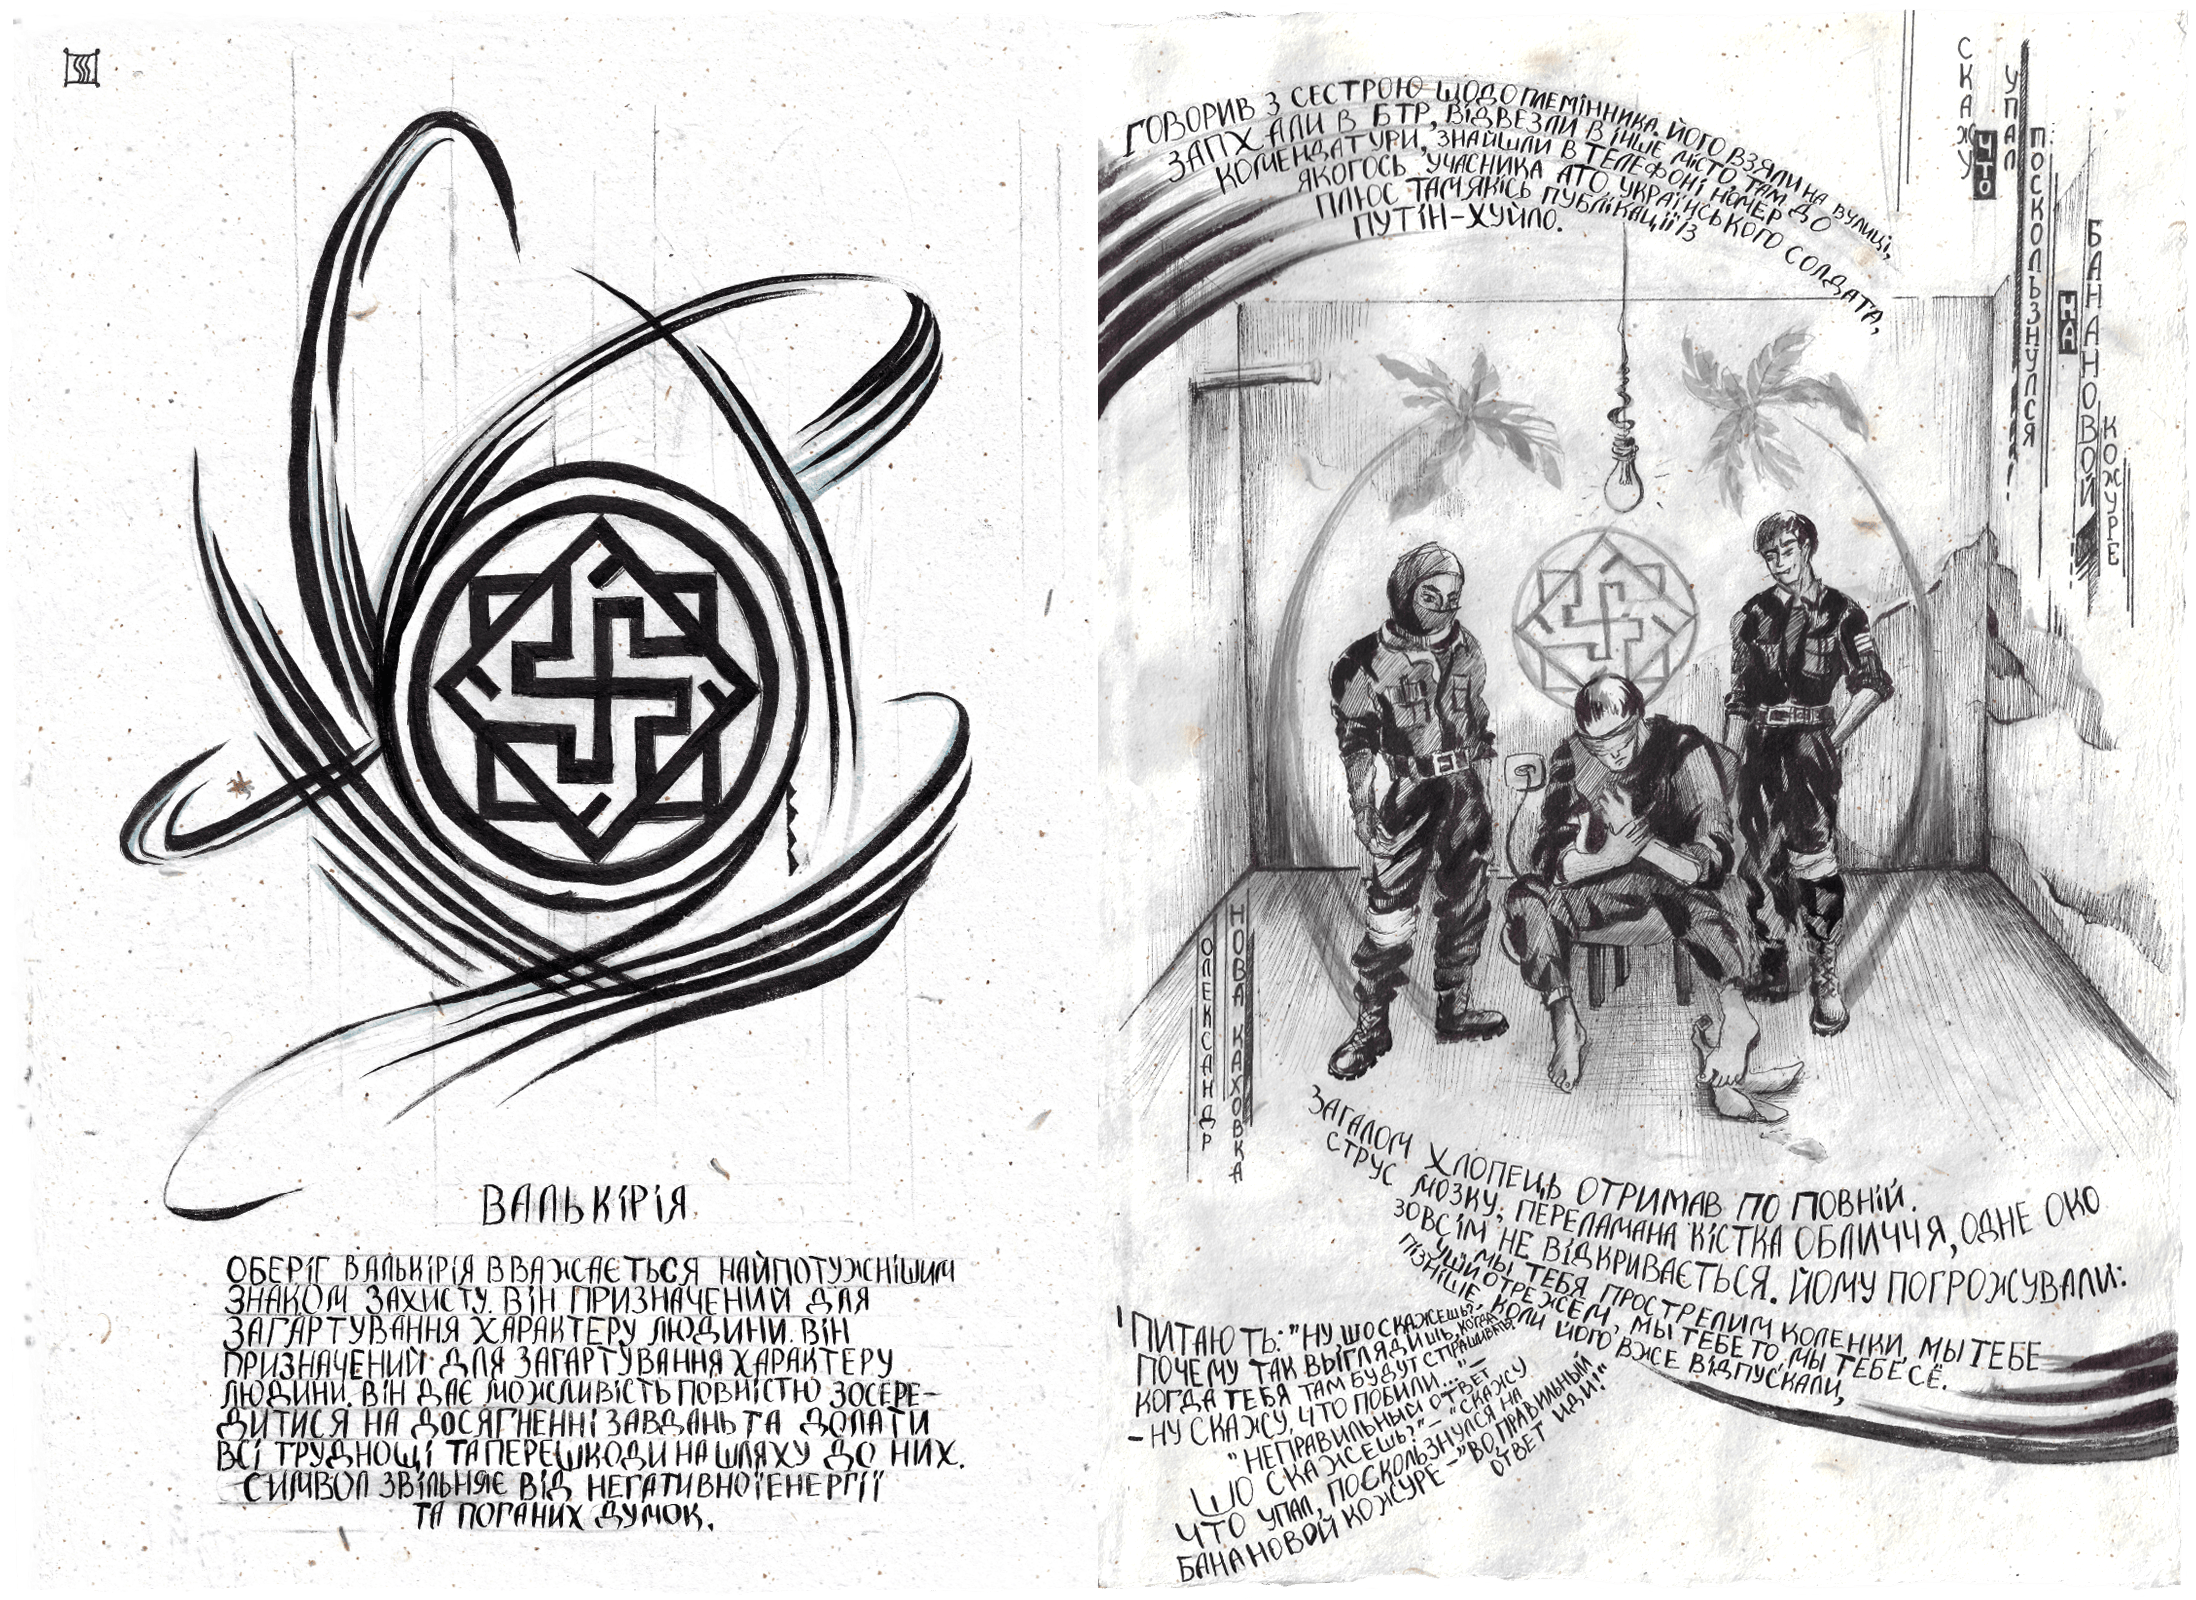 ВАЛЬКІРІЯ
ОБЕРІГ ВАЛЬКІРІЯ ВВАЖАЄТЬСЯ НАЙПОТУЖНІШИМ
ЗНАКОМ ЗАХИСТУ. ВІН ПРИЗНАЧЕНИЙ ДЛЯ
ЗАГАРТУВАННЯ ХАРАКТЕРУ ЛЮДИНИ. ВІН
ПРИЗНАЧЕНИЙ ДЛЯ ЗАГАРТУВАННЯ ХАРАКТЕРУ
ЛЮДИНИ. ВІН ДАЄ МОЖЛИВІСТЬ ПОВНІСТЮ ЗОСЕРЕ-
ДИТИСЯ НА ДОСЯГНЕННІ ЗАВДАНЬ ТА ДОЛАТИ
ВСІ ТРУДНОЩІ ТА ПЕРЕШКОДИ НА ШЛЯХУ ДО НИХ.
СИМВОЛ ЗВІЛЬНЯЄ ВІД НЕГАТИВНОЇ ЕНЕРГІЇ
ТА ПОГАНИХ ДУМОК.
ГОВОРИВ З СЕСТРОЮ ЩОДО ПЛЕМІННИКА. ЙОГО ВЗЯЛИ НА ВУЛИЦІ,
ЗАПХАЛИ В БТР, ВІДВЕЗЛИ В ІНШЕ МІСТО ТАМ ДО
КОМЕНДАТУРИ, ЗНАЙШЛИ В ТЕЛЕФОНІ НОМЕР
ЯКОГОСЬ УЧАСНИКА АТО, УКРАЇНСЬКОГО СОЛДАТА,
ПЛЮС ТАМ ЯКІСЬ ПУБЛІКАЦІЇ ІЗ
ПУТІН-ХУЙЛО.
СКАЖУ
ЧТО
УПАЛ
ПОСКОЛЬЗНУЛСЯ
НА
БАНАНОВОЙ
КОЖУРЕ
ОЛЕКСАНДР
НОВА КАХОВКА
ЗАГАЛОМ ХЛОПЕЦЬ ОТРИМАВ ПО ПОВНІЙ.
СТРУС МОЗКУ, ПЕРЕЛАМАНА КІСТКА ОБЛИЧЧЯ, ОДНЕ ОКО
ЗОВСІМ НЕ ВІДКРИВАЄТЬСЯ. ЙОМУ ПОГРОЖУВАЛИ:
"МЫ ТЕБЯ ПРОСТРЕЛИМ КОЛЕНКИ, МЫ ТЕБЕ
УШИ ОТРЕЖЕМ, МЫ ТЕБЕ ТО, МЫ ТЕБЕ СЁ.
ПІЗНІШЕ, КОЛИ ЙОГО ВЖЕ ВІДПУСКАЛИ,
ПИТАЮТЬ: "НУ ШО СКАЖЕШЬ?-
ПОЧЕМУ ТАК ВЫГЛЯДИШЬ, КОГДА
КОГДА ТЕБЯ ТАМ БУДУТ СПРАШИВАТЬ?"
- НУ СКАЖУ, ЧТО ПОБИЛИ..."-
"НЕПРАВИЛЬНЫЙ ОТВЕТ
ШО СКАЖЕШЬ?"- "СКАЖУ
ЧТО УПАЛ, ПОСКОЛЬЗНУЛСЯ НА
БАНАНОВОЙ КОЖУРЕ -"ВО, ПРАВИЛЬНЫЙ
ОТВЕТ ИДИ!"